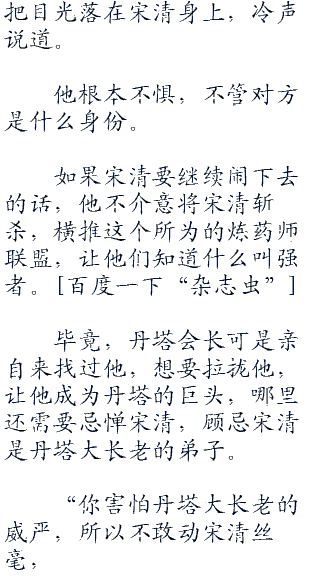 把目光落在宋清身上，冷声
说道。
他根本不惧，不管对方
是什么身份。
如果宋清要继续闹下去
的话，他不介意将宋清斩
杀，横推这个所为的炼药师
联盟，让他们知道什么叫强
者。[百度一下“杂志虫”]
毕竟，丹塔会长可是亲
自来找过他，想要拉拢他，
让他成为丹塔的巨头，哪里
还需要忌惮宋清，顾忌宋清
是丹塔大长老的弟子。
“你害怕丹塔大长老的
威严，所以不敢动宋清丝
毫，